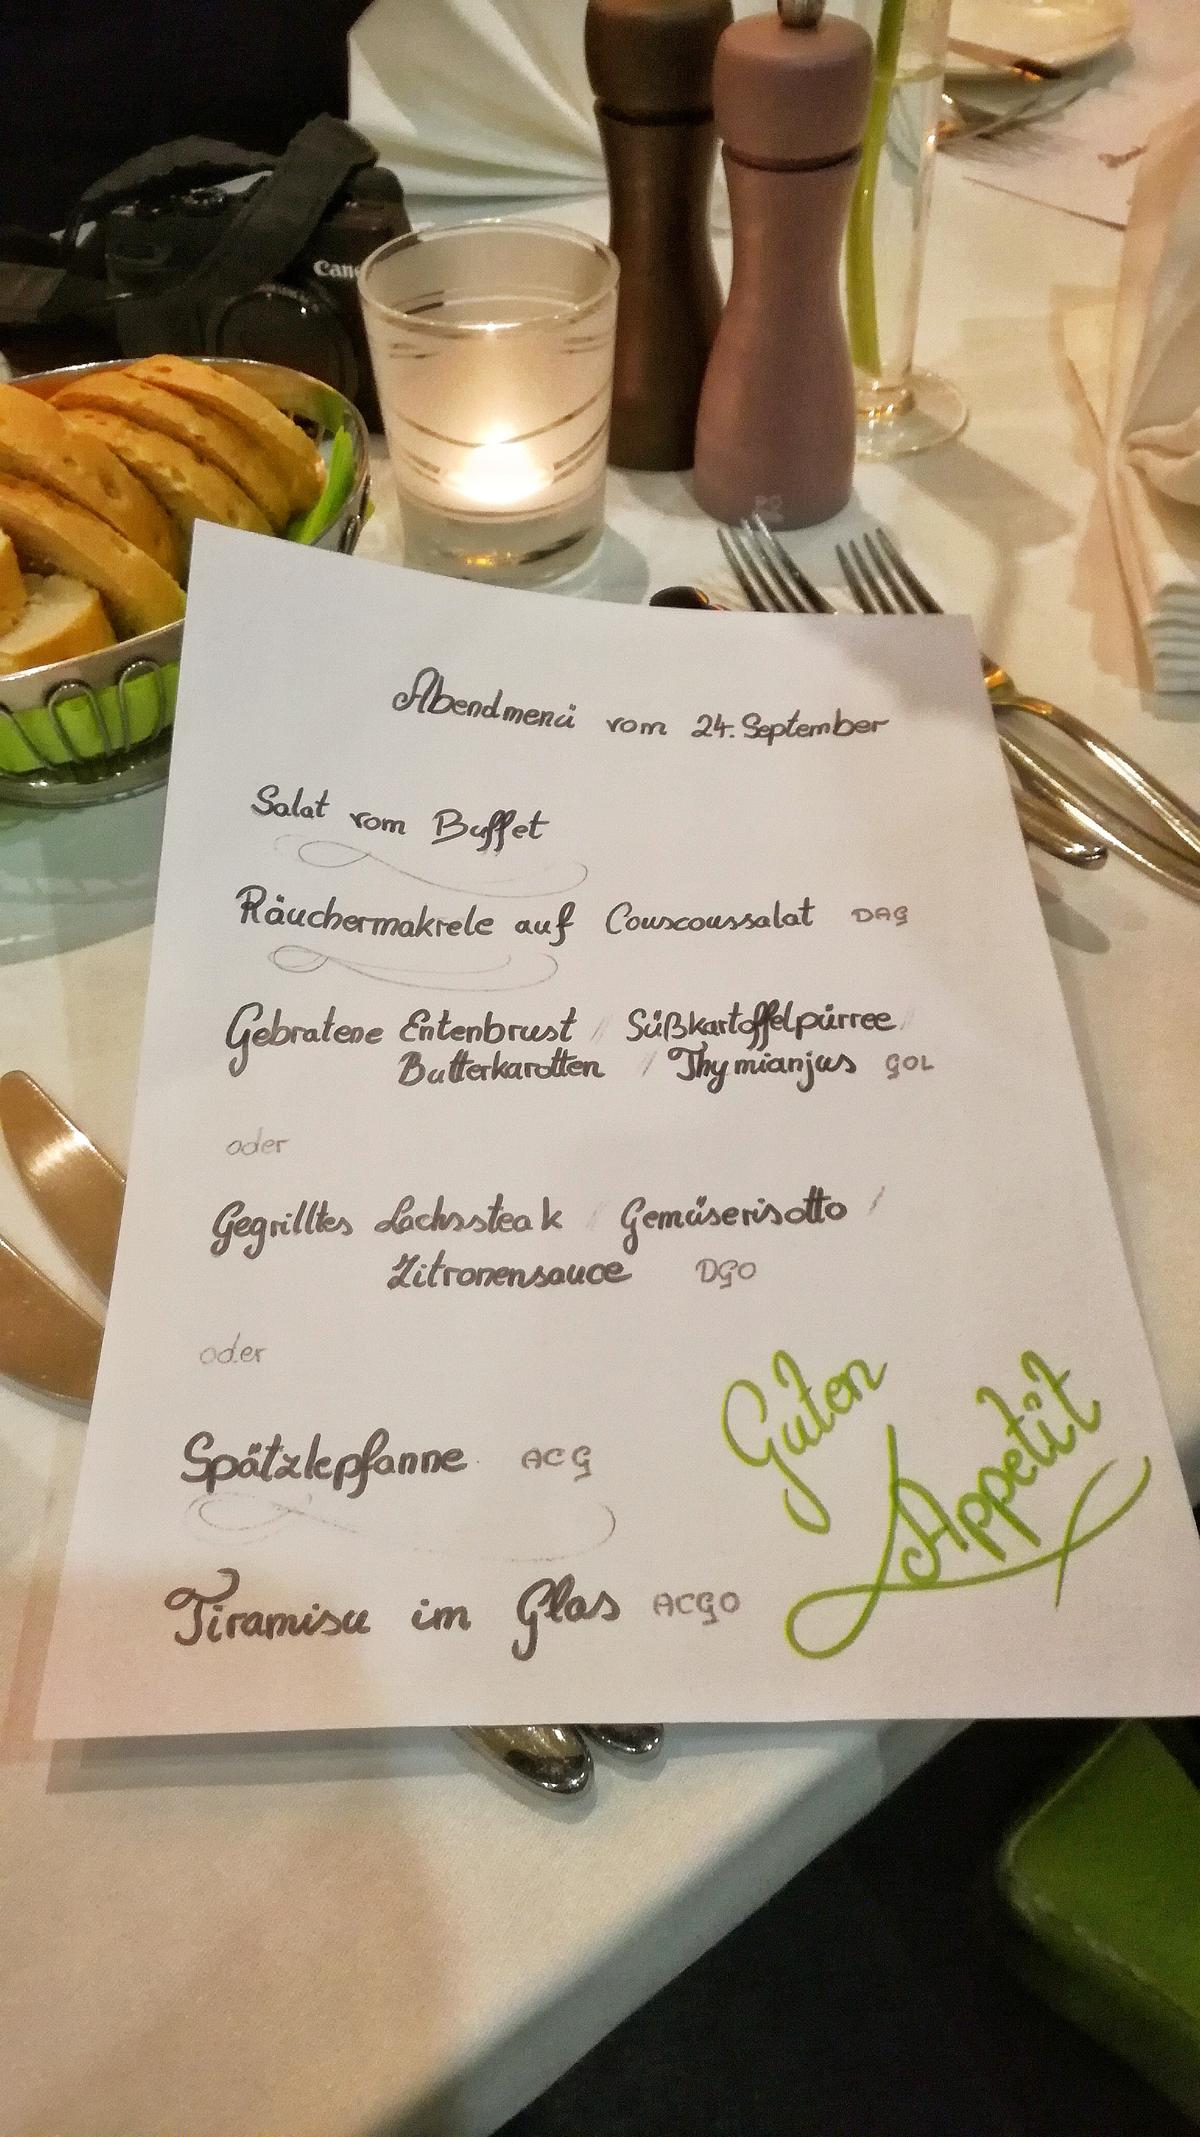 Canc
Abendmenü vom 24. September
Salat vom Buffet
Räuchermakrele auf Couscoussalat DAG
Gebratene Entenbrust / Süßkartoffelpürree /
Butterkarotten / Thymianjus GOL
oder
Gegrilltes Lachssteak / Gemüserisotto /
Zitronensauce DGO
oder
Spätzlepfanne ACG
Tiramisu im Glas ACGO
Guten
Appetit